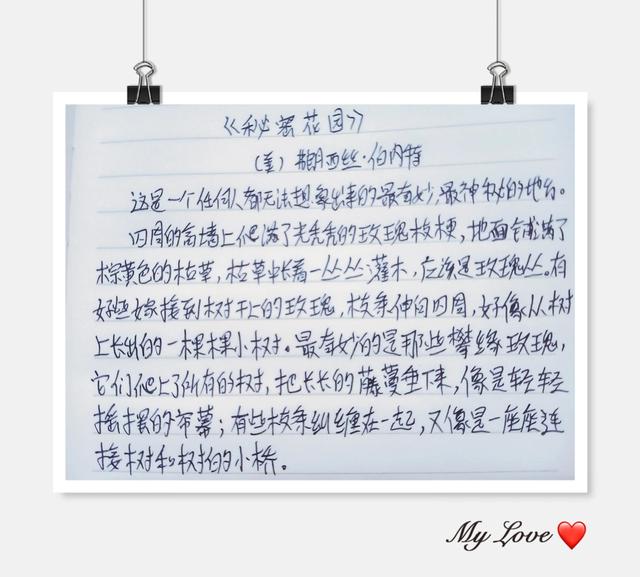 《秘密花园》
(美) 弗朗西丝·伯内特
这是一个任何人都无法想象出来的最奇妙,最神秘的地方。
四周的高墙上爬满了光秃秃的玫瑰枝梗,地面铺满了
棕黄色的枯草,枯草中长着一丛丛灌木,应该是玫瑰丛。有
好些嫁接到树干上的玫瑰,枝条伸向四周,好像从树
上长出的一棵棵小树。最奇妙的是那些攀缘玫瑰,
它们爬上了所有的树,把长长的藤蔓垂下来,像是轻轻
摇摆的帘幕;有些枝条纠缠在一起,又像是一座座连
接树和树的小桥。
My Love ❤️